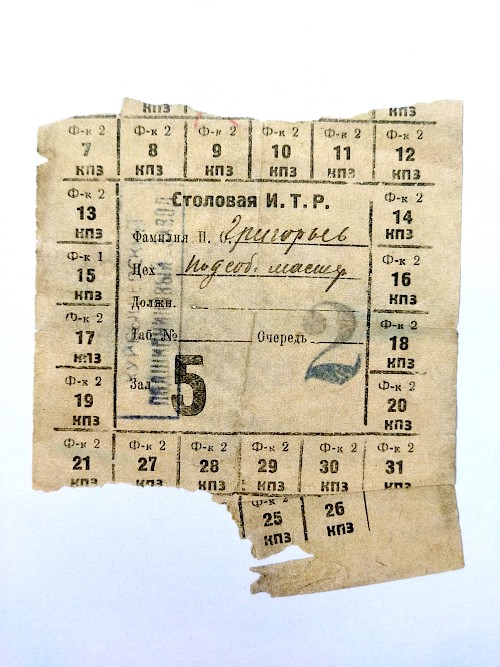 КПЗ
Ф-к 2 Ф-к 2 Ф-к 2 Ф-к 2 Ф-к 2 Ф-к 2
7 8 9 10 11 12
КПЗ КПЗ КПЗ КПЗ КПЗ КПЗ
Ф-к 2
13
КПЗ
Ф-к 1
15
КПЗ
Ф-к 2
17
КПЗ
Ф-к 2
19
КПЗ
Столовая И. Т. Р.
Фамилия И. О. Григорьев
Цех Подсоб. мастер
Должн.
Таб. № Очередь 2
Зал 5
Ф-к 2
14
КПЗ
Ф-к 2
16
КПЗ
Ф-к 2
18
КПЗ
Ф-к 2
20
КПЗ
Ф-к 2 Ф-к 2 Ф-к 2 Ф-к 2 Ф-к 2 Ф-к 2
21 27 28 29 30 31
КПЗ КПЗ КПЗ КПЗ КПЗ КПЗ
Ф-к 2
25 26
КПЗ КПЗ